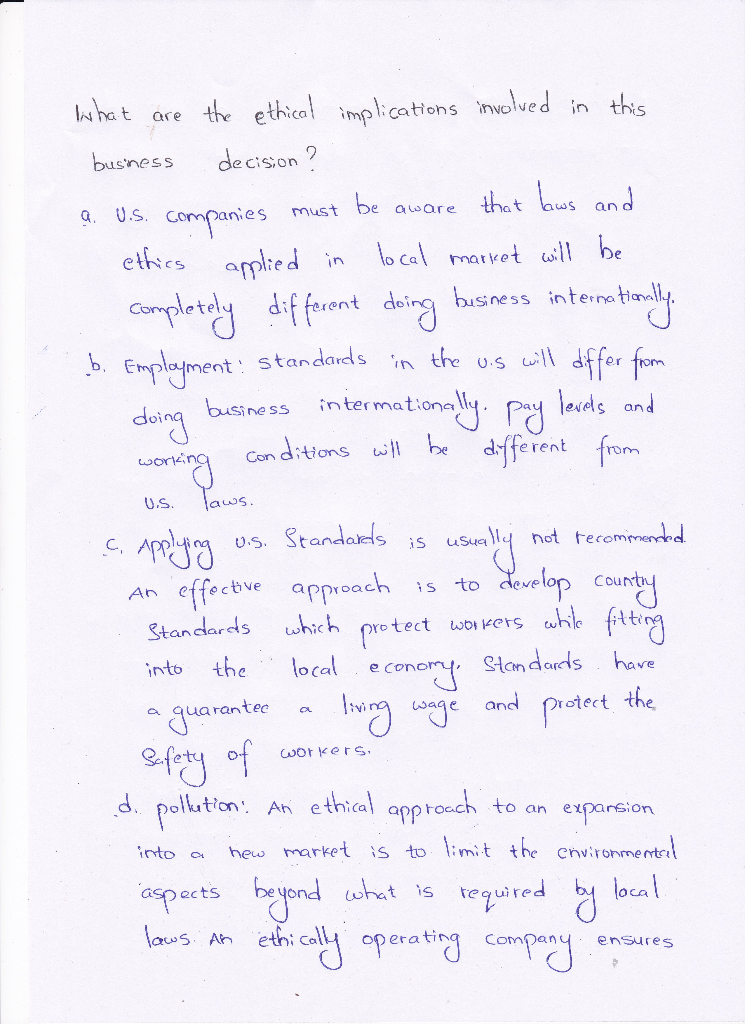 What are the ethical implications involved in this
business decision?
a. U.S. companies must be aware that laws and
ethics applied in local market will be
completely different doing business internationally.
b. Employment: standards in the U.S will differ from
doing business intermationally. pay levels and
working conditions will be different from
U.S. laws.
C. Applying U.S. Standards is usually not recommended
An effective approach is to develop country
Standards which protect workers while fitting
into the local economy. Standards have
a guarantee a living wage and protect the
Safety of workers.
d. pollution: An ethical approach to an expansion
into a new market is to limit the environmental
aspects beyond what is required by local
laws. An ethically operating company ensures